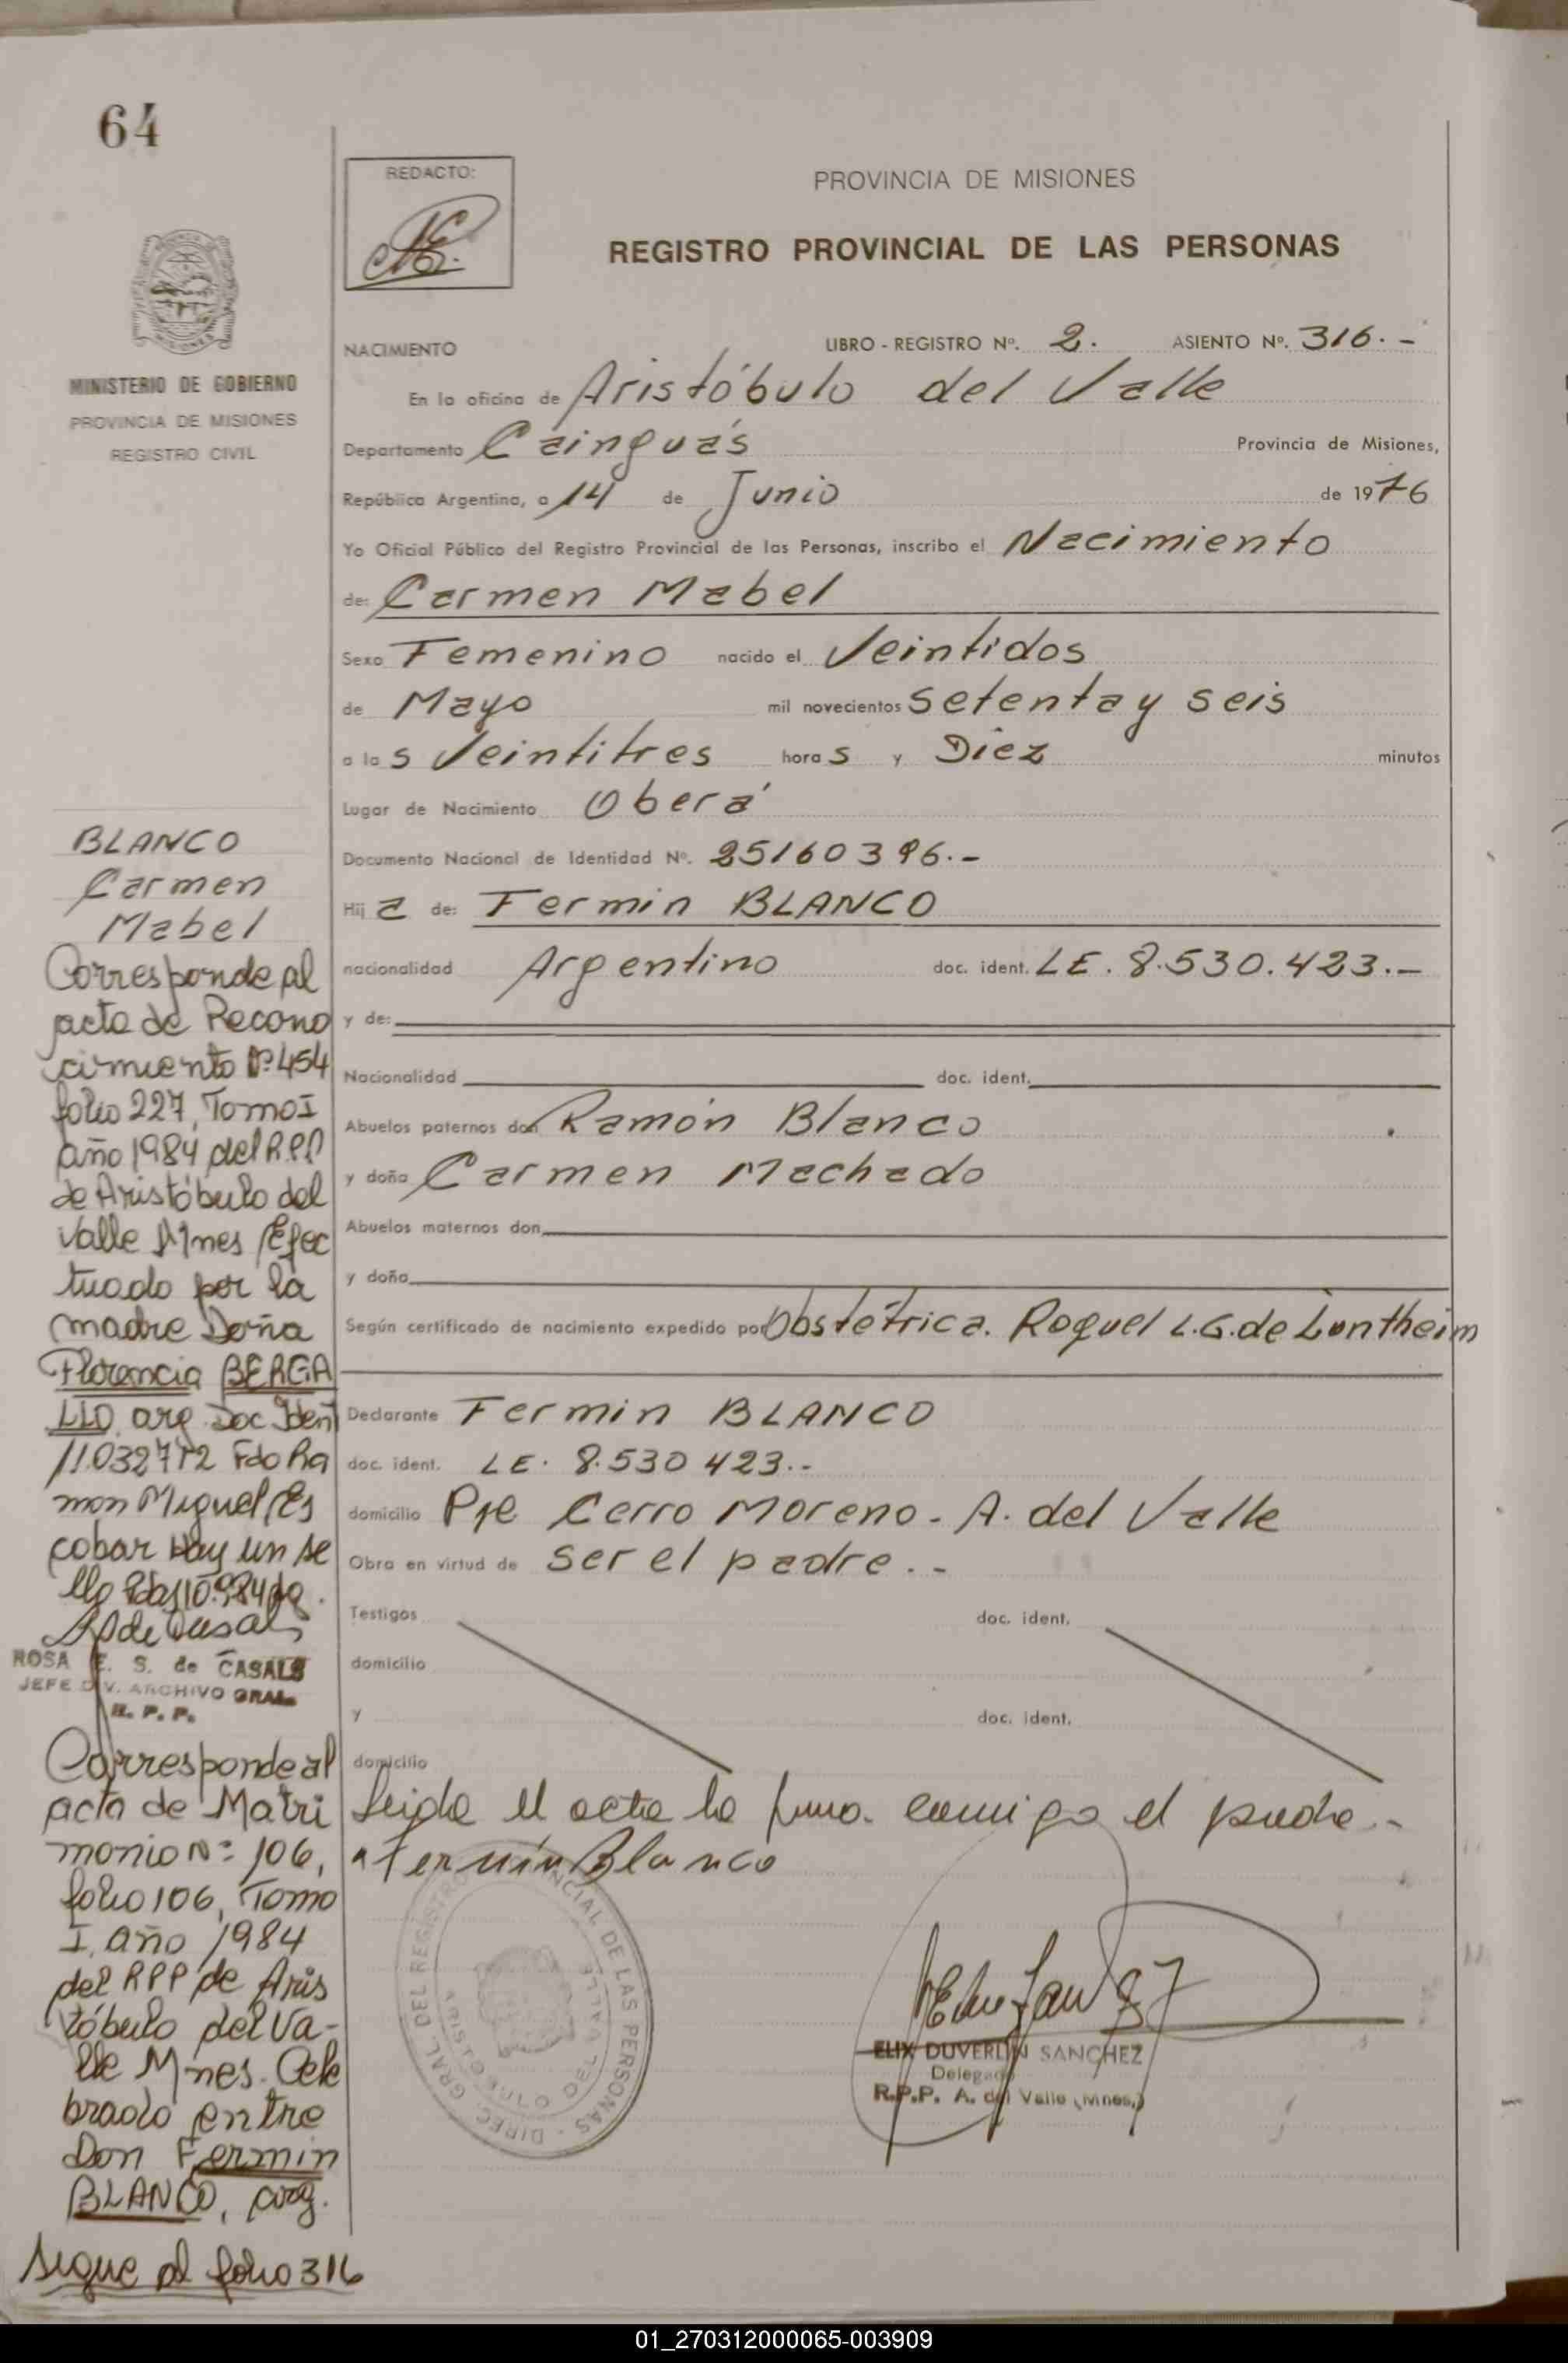 64
REDACTO:
PROVINCIA DE MISIONES
REGISTRO PROVINCIAL DE LAS PERSONAS
MINISTERIO DE GOBIERNO
PROVINCIA DE MISIONES
REGISTRO CIVIL
NACIMIENTO LIBRO - REGISTRO Nº. 2. ASIENTO Nº. 316.-
En la oficina de Aristóbulo del Valle
Departamento Cainguás Provincia de Misiones,
República Argentina, a 14 de Junio de 1976
Yo Oficial Público del Registro Provincial de las Personas, inscribo el Nacimiento
de: Carmen Mabel
Sexo Femenino nacido el Veintidos
de Mayo mil novecientos setenta y seis
a las Veintitres horas y Diez minutos
Lugar de Nacimiento Oberá
Documento Nacional de Identidad Nº. 25160396.-
Hija de: Fermin BLANCO
nacionalidad Argentino doc. ident. LE. 8.530.423.-
y de:
Nacionalidad doc. ident.
Abuelos paternos don Ramón Blanco
y doña Carmen Machado
Abuelos maternos don
y doña
Según certificado de nacimiento expedido por Obstétrica. Raquel L.G. de
Declarante Fermin BLANCO
doc. ident. LE. 8.530 423.-
domicilio Pje Cerro Moreno - A. del Valle
Obra en virtud de ser el padre.-
Testigos doc. ident.
domicilio
y doc. ident.
domicilio
Leida el acta la firma conmigo el padre.-
Fermín Blanco
DIREC. GRAL. DEL REGISTRO PROVINCIAL DE LAS PERSONAS
ELIX DUVERLIN SANCHEZ
Delegado
R.P.P. A. del Valle (Mnes.)
BLANCO
Carmen
Mabel
Corresponde al
acta de Recono
cimiento Nº 454
folio 227, Tomo I
año 1984 del R.P.P
de Aristóbulo del
Valle Mnes Efec
tuado por la
madre Doña
Florencia BERGA
LLO arg. Doc Iden
11.032772 Fdo Ra
mon Miguel Es
cobar Hay un se
llo
ROSA E. S. de CASALS
JEFE DIV. ARCHIVO GRAL.
R. P. P.
Corresponde al
acta de Matri
monio Nº 106,
folio 106, Tomo
I, año 1984
del RPP de Aris
tóbulo del Va-
lle Mnes. Cele
brado entre
Don Fermin
BLANCO, arg.
Sigue al folio 316
01_270312000065-003909